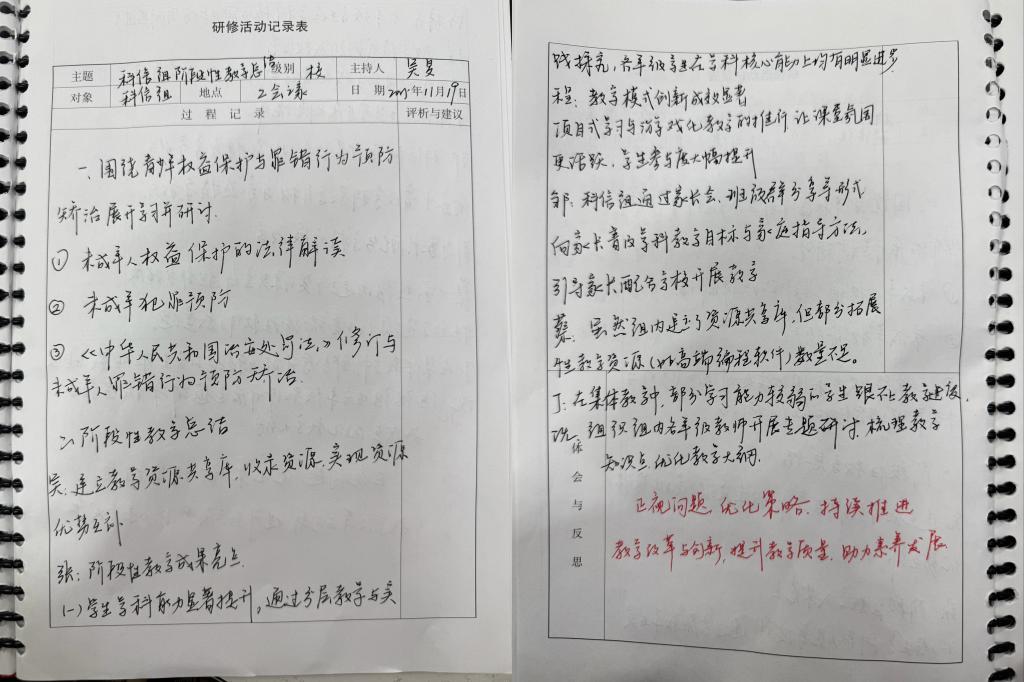 研修活动记录表
主题 科信组阶段性教学总结 级别 校 主持人 吴
对象 科信组 地点 2会议 日期 2025年11月19日
过程记录 评析与建议
一、围绕青少年权益保护与罪错行为预防
矫治展开学习并研讨.
① 未成年人权益保护的法律解读
② 未成年犯罪预防
③ 《中华人民共和国治安处罚法》修订与
未成年人罪错行为预防矫治.
二、阶段性教学总结
吴:建立教学资源共享库,收录资源,实现资源
优势互补
张:阶段性教学成果亮点.
(一)学生学科能力显著提升,通过分层教学与实
践探究,各年级学生在学科核心能力上均有明显进步
程:教学模式创新成效显著
项目式学习与游戏化教学的推行让课堂氛围
更活跃,学生参与度大幅提升
邹:科信组通过家长会、班级群分享等形式
向家长普及学科教学目标与家庭指导方法,
引导家长配合学校开展教学
蔡:虽然组内建立了资源共享库,但部分拓展
性教学资源(如高端编程软件)数量不足。
丁:在集体教学中,部分学习能力较弱的学生跟不上教学进度.
沈:组织组内各年级教师开展专题研讨,梳理教学
知识点,优化教学大纲.
体会与反思
正视问题,优化策略.持续推进
教学改革与创新,提升教学质量,助力素养发展